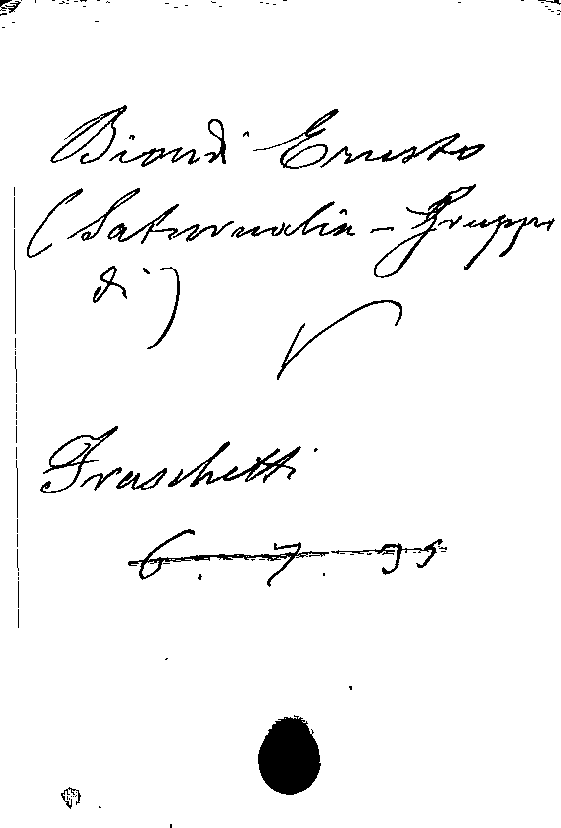 Biondi Ernesto
(Saturnalia - Gruppo
di)
Fraschetti
6. 7. 95